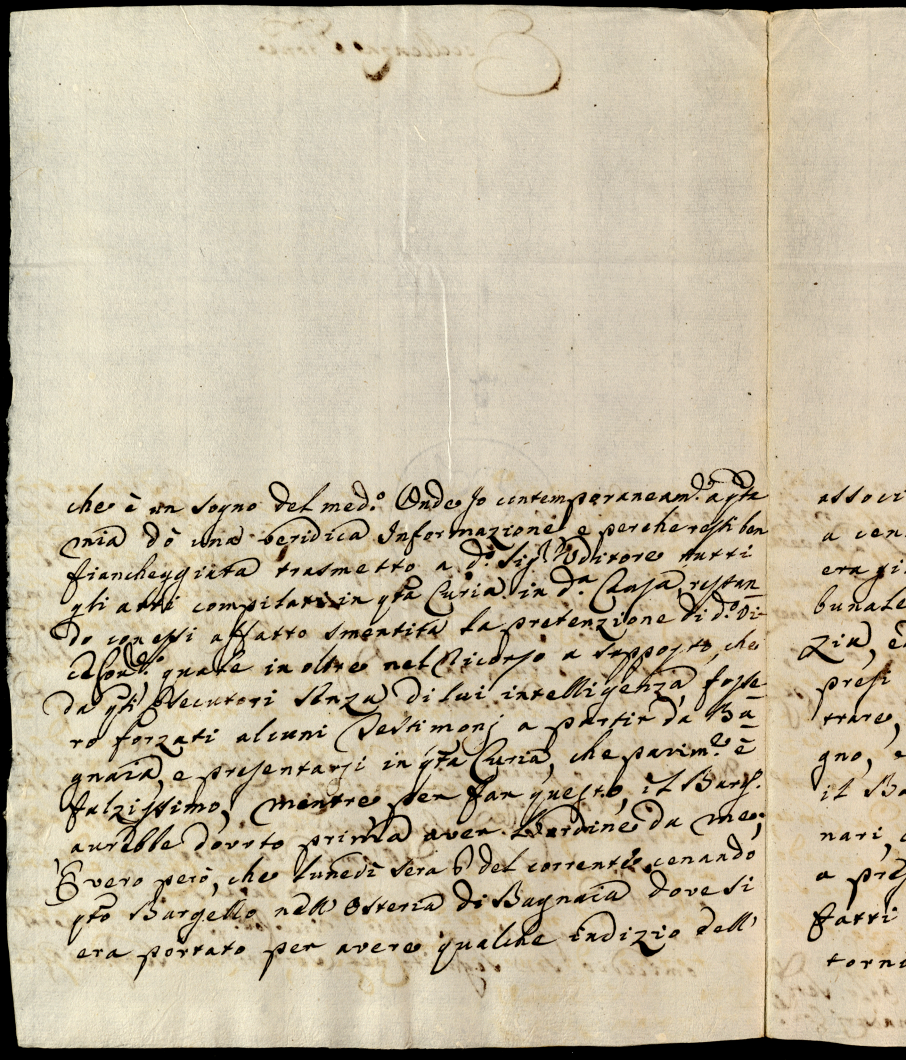 che è un sogno del med.º Onde Io contemporaneam.e a q̃sta
mia dò una veridica Informazione e perche resti ben
fiancheggiata trasmetto a d.º Sig.r Uditore tutti
gli atti compilati in q̃ta Curia in d.a Causa, restan=
do con essi affatto smentita la pretenzione di d.º Vi=
quale in oltre nel Ricorso a supposto, che
da q̃ti Esecutori senza di lui intelligenza fosse=
ro forzati alcuni Testimonj a partir da Ba=
gnaia, e presentarsi in q̃ta Curia, che parim.e è
falzissimo, mentre per far questo, il Barg.º
aurebbe dovuto prima aver l'ordine da me;
È vero però, che lunedì sera 8 del corrente cenando
q̃to Bargello nell'Osteria di Bagnaia dove si
era portato per avere qualche indizio dell'
associ
a cen
era
bunale
zia, e
presi
trare,
gno, e
il Ba
nari,
a pres
fatti
torni